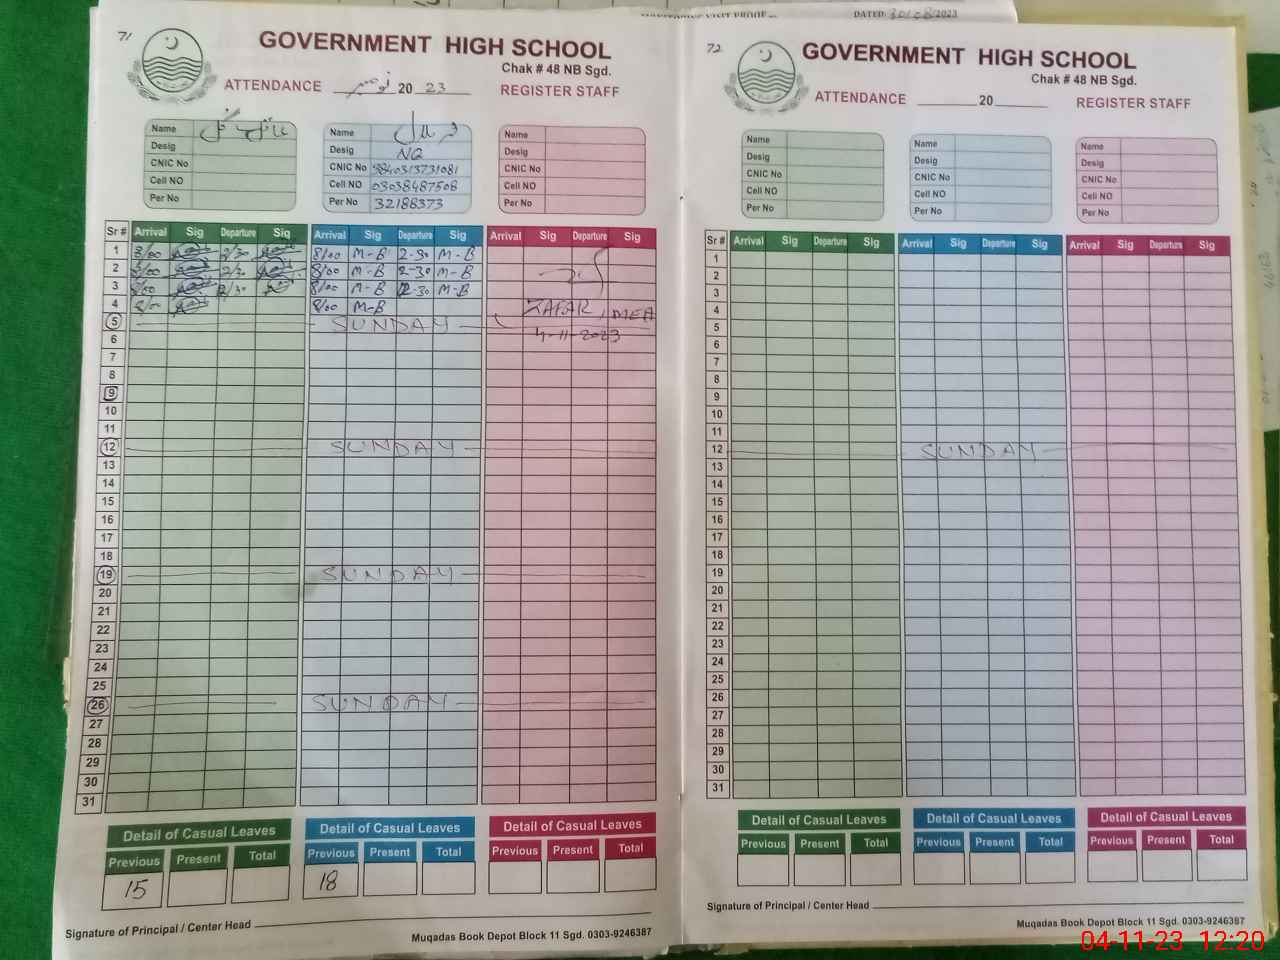 DATED: 30/08/2023
71
GOVERNMENT HIGH SCHOOL
Chak # 48 NB Sgd.
ATTENDANCE نومبر 20 23 REGISTER STAFF
Name
Desig
CNIC No
Cell NO
Per No
Name
Desig NQ
CNIC No 3840313731081
Cell NO 03038487508
Per No 32188373
Name
Desig
CNIC No
Cell NO
Per No
Sr # Arrival Sig Departure Sig Arrival Sig Departure Sig Arrival Sig Departure Sig
1 8/00 2/30 8/00 M-B 2-30 M-B
2 8/00 2/30 8/00 M-B 2-30 M-B
3 8/00 2/30 8/00 M-B 2-30 M-B
4 8/00 8/00 M-B ZAFAR, MEA
5 SUNDAY
4-11-2023
6
7
8
9
10
11
12 SUNDAY
13
14
15
16
17
18
19 SUNDAY
20
21
22
23
24
25
26 SUNDAY
27
28
29
30
31
Detail of Casual Leaves Detail of Casual Leaves Detail of Casual Leaves
Previous Present Total Previous Present Total Previous Present Total
15 18
Signature of Principal / Center Head
Muqadas Book Depot Block 11 Sgd. 0303-9246387
72
GOVERNMENT HIGH SCHOOL
Chak # 48 NB Sgd.
ATTENDANCE 20 REGISTER STAFF
Name
Desig
CNIC No
Cell NO
Per No
Name
Desig
CNIC No
Cell NO
Per No
Name
Desig
CNIC No
Cell NO
Per No
Sr # Arrival Sig Departure Sig Arrival Sig Departure Sig Arrival Sig Departure Sig
1
2
3
4
5
6
7
8
9
10
11
12 SUNDAY
13
14
15
16
17
18
19
20
21
22
23
24
25
26
27
28
29
30
31
Detail of Casual Leaves Detail of Casual Leaves Detail of Casual Leaves
Previous Present Total Previous Present Total Previous Present Total
Signature of Principal / Center Head
Muqadas Book Depot Block 11 Sgd. 0303-9246387
04-11-23 12:20